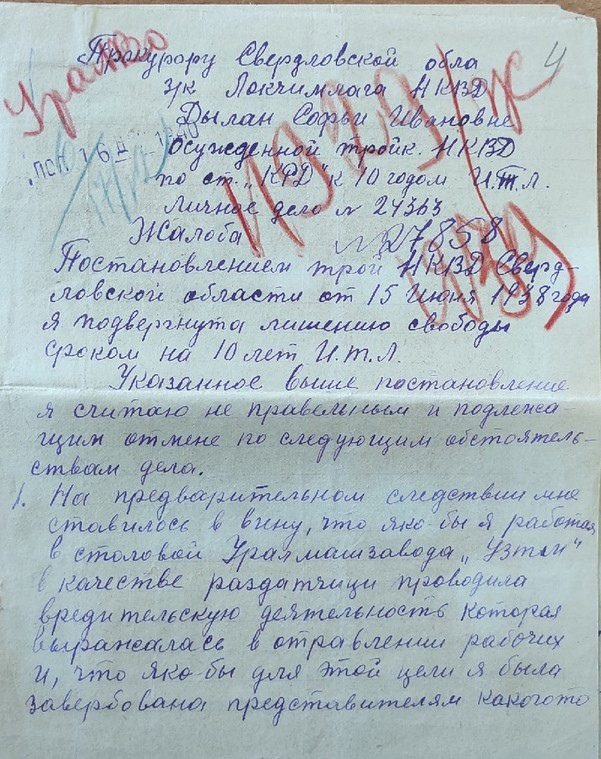 4
Прокурору Свердловской обла
з/к Локчимлага НКВД
Дылан Софьи Ивановне
осужденной тройк. НКВД
по ст. „КРД" к 10 годом И.Т.Л.
Личное дело № 24363
Жалоба № 27858
Постановлением трой НКВД Сверд-
ловской области от 15 Июня 1938 года
я подвергнута лишению свободы
сроком на 10 лет И.Т.Л.
Указанное выше постановление
я считаю не правельным и подлежа-
щим отмене по следующим обстоятель-
ствам дела.
1. На предварительном следствии мне
ставилось в вину, что яко-бы я работая
в столовой Уралмашзавода „Узтм"
в качестве раздатчици проводила
вредительскую деятельность которая
выражалась в отравлении рабочих
и, что яко-бы для этой цели я была
завербована представителям какогото